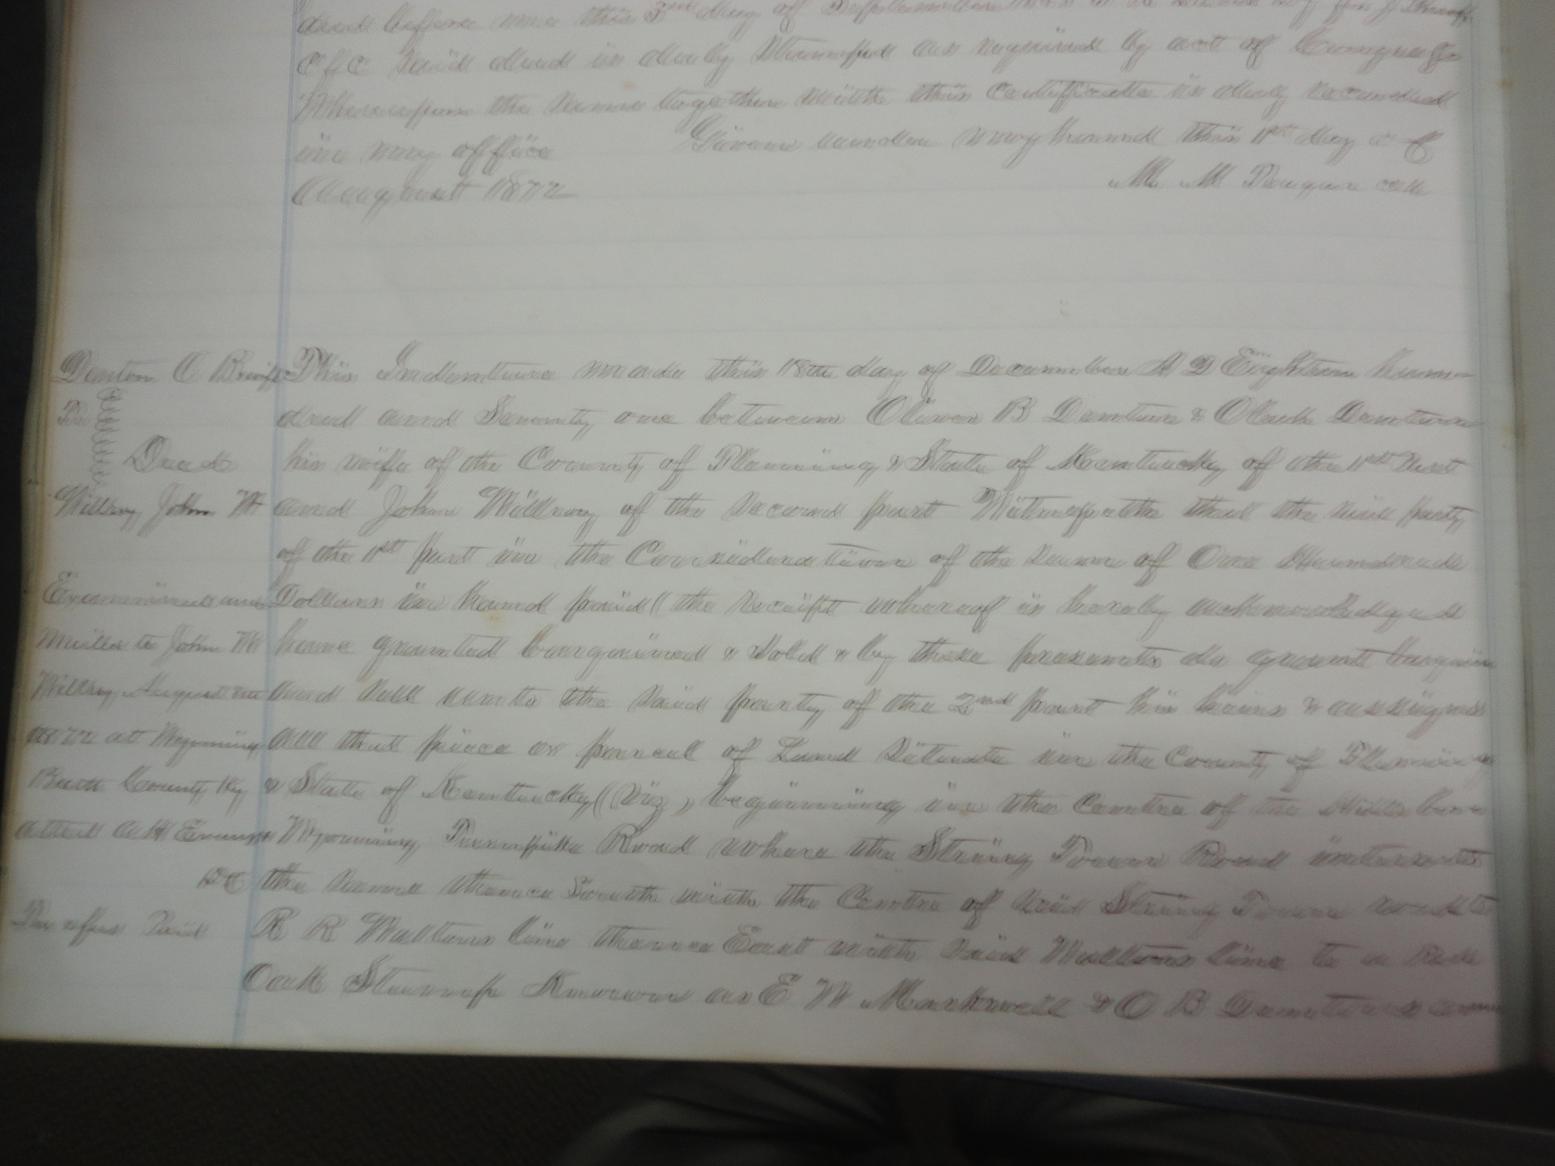 and before me this 3rd day of September
C F C said deed is duly Stamped as required by act of Congress
Whereupon the same together with this Certificate is duly recorded
in my office Given under my hand this 1st day of
August 1872 M M Teager
Denton O B wife
To
Deed
Willsey John W
Examined and
mailed to John W
Willsey August
1872 at Wyoming
Bath County Ky
attest
Tax & fee Paid
This Indenture made this 18th day of December A D Eighteen hun
dred and Seventy one between Oliver B Denton &
his wife of the County of Fleming & State of Kentucky of the 1st Part
and John Willsey of the second part Witnesseth that the said party
of the 1st part in the Consideration of the sum of One Hundred
Dollars in hand paid (the receipt whereof is hereby acknowledged
have granted bargained & sold & by these presents do grant bargain
and sell unto the said party of the 2nd part his heirs & assigns
all that piece or parcel of Land Situate in the County of Fleming
& State of Kentucky (Viz) beginning in the Centre of the
Wyoming Turnpike Road where the String Town Road intersects
the same thence South with the Centre of said String Town road to
R R Waltons line thence East with said Waltons line to a Red
Oak Stump Known as E W Markwell & O B Dentons